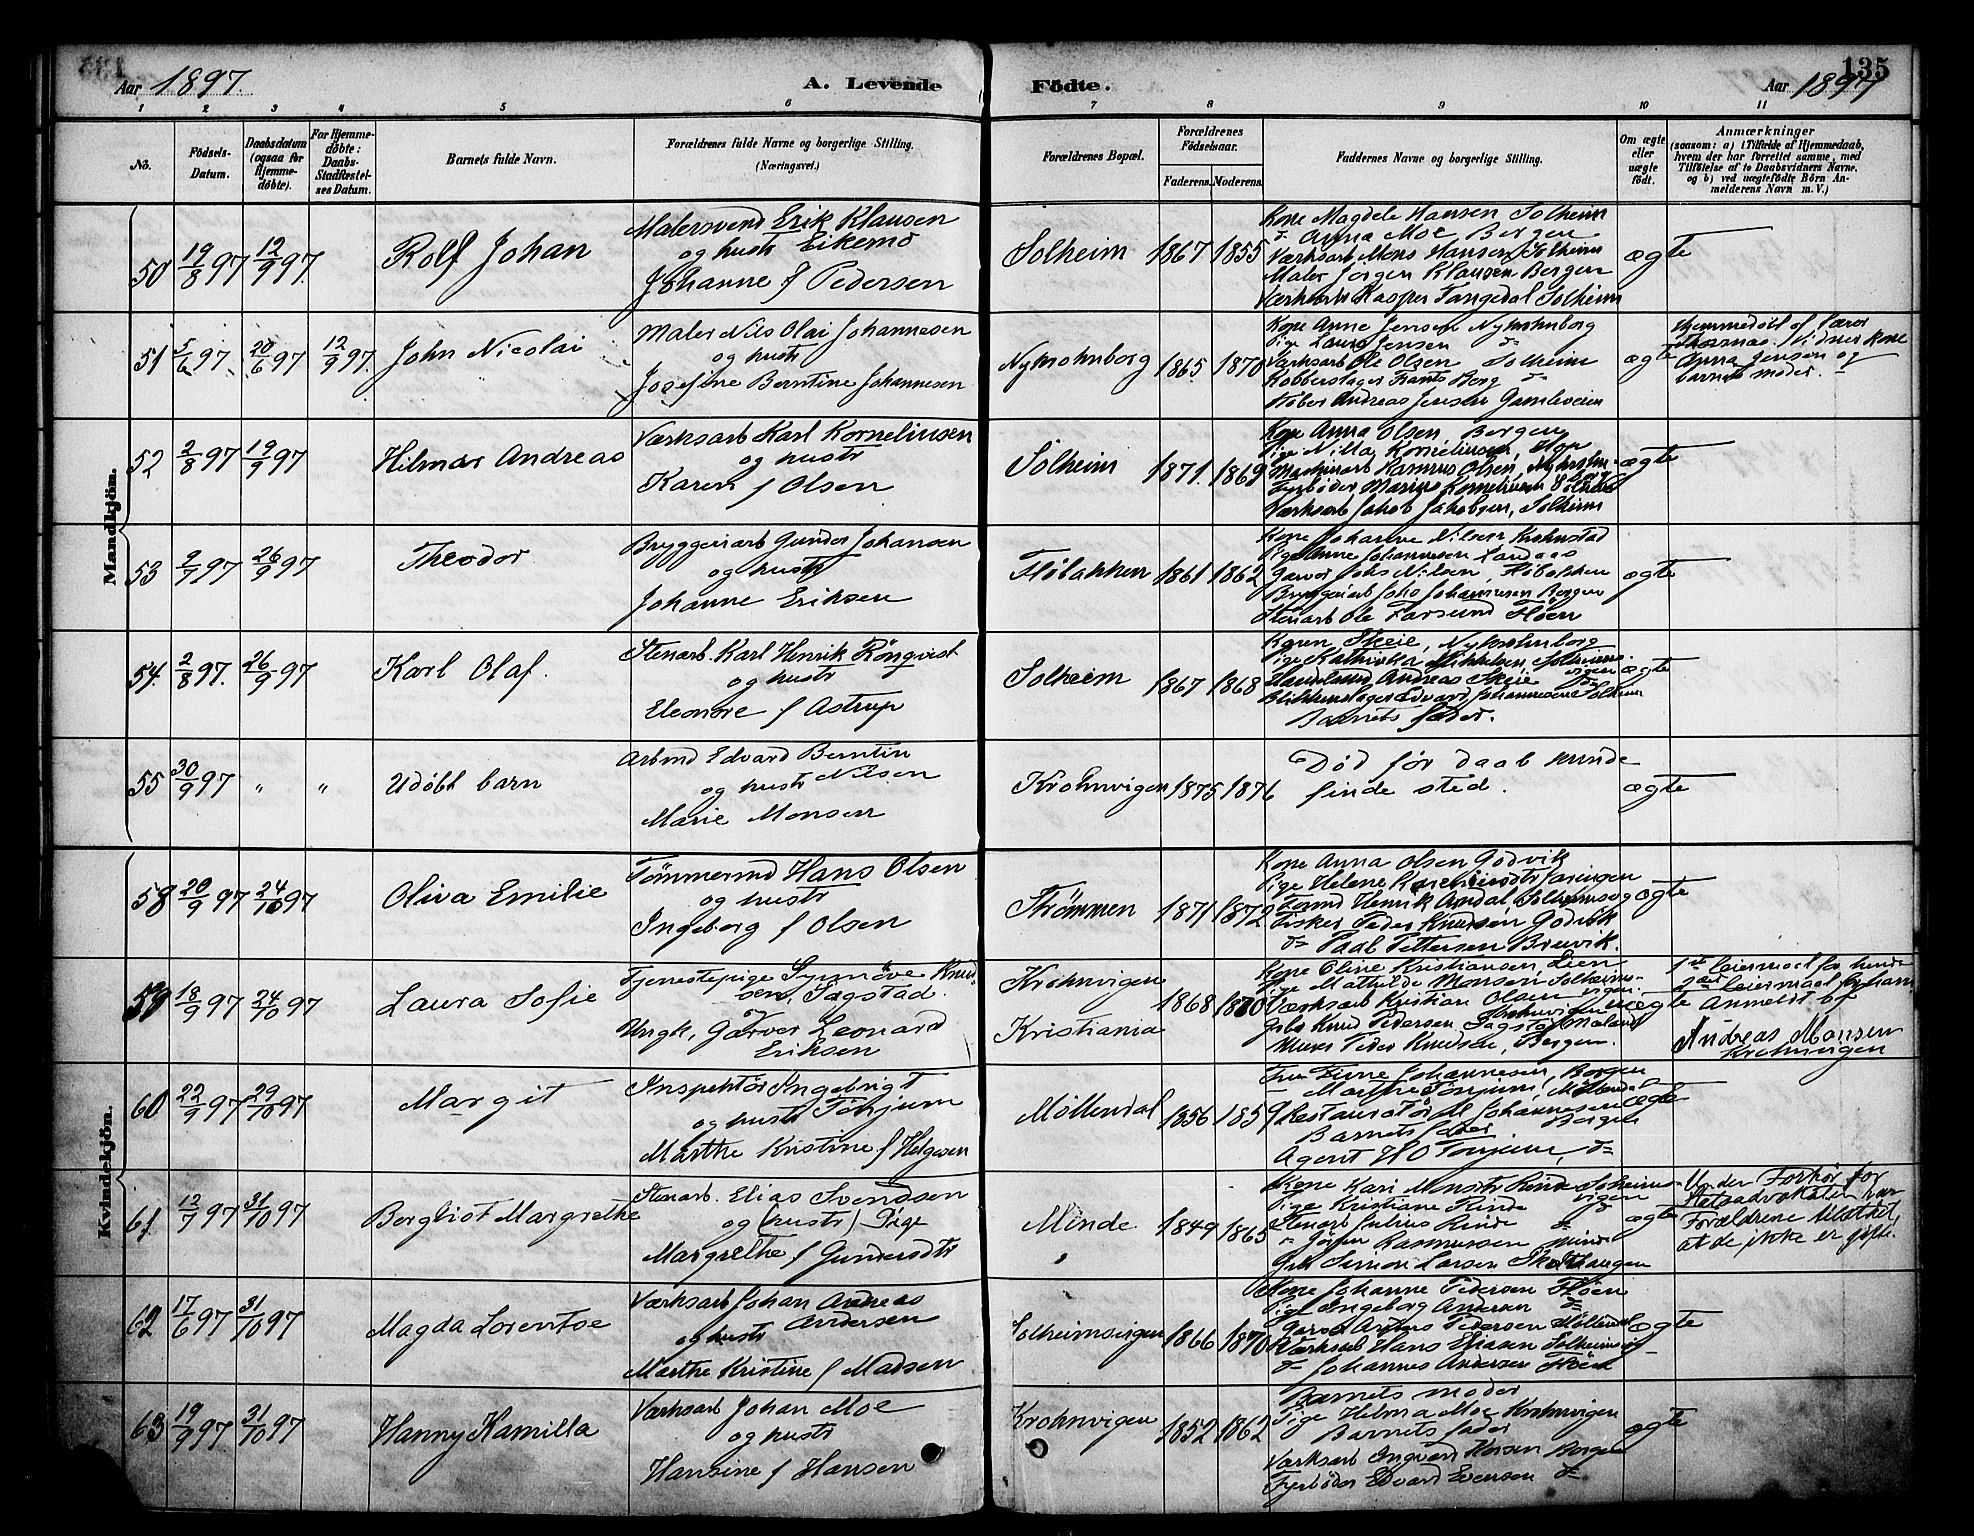 Aar 1897. A. Levende Födte. Aar 1897 135
1 2 3 4 5 6 7 8 9 10 11
No.
Födsels-
Datum.
Daabsdatum
(ogsaa for
Hjemme-
døbte).
For Hjemme-
døbte:
Daabs-
Stadfæstel-
ses Datum.
Barnets fulde Navn.
Forældrenes fulde Navne og borgerlige Stilling.
(Næringsvei.)
Forældrenes Bopæl.
Forældrenes
Födselsaar.
Faderens. Moderens.
Faddernes Navne og borgerlige Stilling.
Om ægte
eller
uægte
født.
Anmærkninger
(saasom: a) i Tilfælde af Hjemmedaab,
hvem der har forrettet samme, med
Tilføielse af to Daabsvidners Navne,
og b) ved uægtefødte Børn An-
melderens Navn m. V.)
Mandkjön.
50 19/8 97 12/9 97. Rolf Johan
Malersvend Erik Klausen
og hustr Eikemo
Johanne f Pedersen
Solheim 1867 1855
Kone Magdele Hansen Solheim
do Anna Moe Bergen
Værksarb Mons Hansen Solheim
Maler Jørgen Klausen Bergen
Værksarb Kasper Tangedal Solheim
ægte
51 5/6 97. 20/6 97 12/9 97. John Nicolai
Maler Nils Olai Johannesen
og hustr
Josefine Berntine Johannesen
Nykrohnborg 1865 1870
Kone Anne Jensen Nykrohnborg
Pige Laura Jensen do
Værksarb Ole Olsen Solheim
Kobberslager Frants Berg do
Køber Andreas Jensen
ægte
Hjemmedøbt af Lærer
Vidner kone
Anna Jensen og
barnets moder.
52 2/8 97 19/9 97 Hilmar Andreas
Værksarb Karl Korneliusen
og hustr
Karen f Olsen
Solheim 1871. 1869
Kone Anna Olsen, Bergen
Pige Nilla Korneliusen,
Maskinarb Rasmus Olsen,
Fyrbøder Marius Korneliusen Solheim
Værksarb Jakob Jakobsen, Solheim
ægte
53 9/7 97 26/9 97 Theodor
Bryggeriarb Gunder Johansen
og hustr
Johanne Eriksen
Fløbakken 1861 1862
Kone Johanne Nilsen Krohnstad
Pige Anne Johannesen Landaas
Garver Johs Nilsen, Fløbakken
Bryggeriarb Johs Johannesen Bergen
Stenarb Ole Farsund Fløen
ægte
54. 2/8 97. 26/9 97 Karl Olaf.
Stenarb. Karl Henrik Rönqvist
og hustr
Eleonore f Astrup
Solheim 1867 1868
Karen Skeie, Nykrohnborg
Pige Kathinka Mikkelsen, Solheims-
vigen
Handelsmd Andreas Skeie do
Blikkenslager Edvard Johannesen Solheim
Barnets fader.
ægte
55 30/9 97 " " Udøbt barn
Arbmd Edvard Berntin
og hustr Nilsen
Marie Monsen
Krohnvigen 1875 1876
Død før daab kunde
finde sted.
ægte
Kvindekjön.
58 20/9 97 24/10 97 Oliva Emilie
Tømmermd Hans Olsen
og hustr
Ingeborg f Olsen
Strømmen 1871 1872
Kone Anna Olsen Godvik
Pige Helene
Tømd Henrik Arndal Solheimsvig
Fisker Peder Knudsen Godvik
do Paal Pettersen Brevik.
ægte
59 18/9 97 24/10 97 Laura Sofie
Tjenestepige Synnöve Knud-
sen, Sagstad.
og
Ungk, Garver Leonard
Eriksen
Krohnvigen
Kristiania 1868 1870
Kone Oline Kristiansen, Lien
Pige Mathilde Monsen Solheims-
vigen
Værksarb Kristian Olsen
Krohnvigen
Gbr Knud Pedersen, Sagstad, Meland
Murer Peder Knudsen, Bergen.
uægte
1ste leiermaal for hende
2det leiermaal for ham.
Anmeldt af
Andreas Monsen
Krohnvigen
60 22/9 97 29/10 97 Margit
Inspektør Ingebrigt
og hustr Tønjum
Marthe Kristine f Helgesen
Møllendal 1856 1859
Fru Johannesen, Bergen
Marthe Tønjum, Møllendal
Restauratør M Johannesen
Bergen
Barnets fader
Agent H O Tønjum, do
ægte
61 12/7 97 31/10 97 Bergliot Margrethe
Stenarb. Elias Svendsen
og (hustr) Pige
Margrethe f Gundersdtr
Minde 1849 1865
Kone Kari Monsdtr Rinde Solheims-
vigen
Pige Kristiane Rinde do
Stenarb Julius Rinde do
" Jörgen Rasmussen Minde
Gbr Simon Larsen Skjolthaugen
ægte
Under Forhør for
Statsadvokaten har
Forældrene tilstaaet,
at de ikke er gifte.
62 17/6 97 31/10 97 Magda Lorentse
Værksarb Johan Andreas
og hustr Andersen
Marthe Kristine f Madsen
Solheimsvigen 1866 1870
Kone Johanne Pedersen Fløen
Pige Ingeborg Andersen do
Garver Pedersen Møllendal
Værksarb Hans Eliasen Solheimsvig
do Johannes Andersen Fløen
ægte
63 19/9 97 31/10 97 Hanny Kamilla
Værksarb Johan Moe
og hustr
Hansine f Hansen
Krohnvigen 1852 1862
Barnets moder
Pige Helma Moe Krohnvigen
Barnets fader
Værksarb Ingvard Hansen Bergen
Fyrbøder Edvard Evensen do
ægte